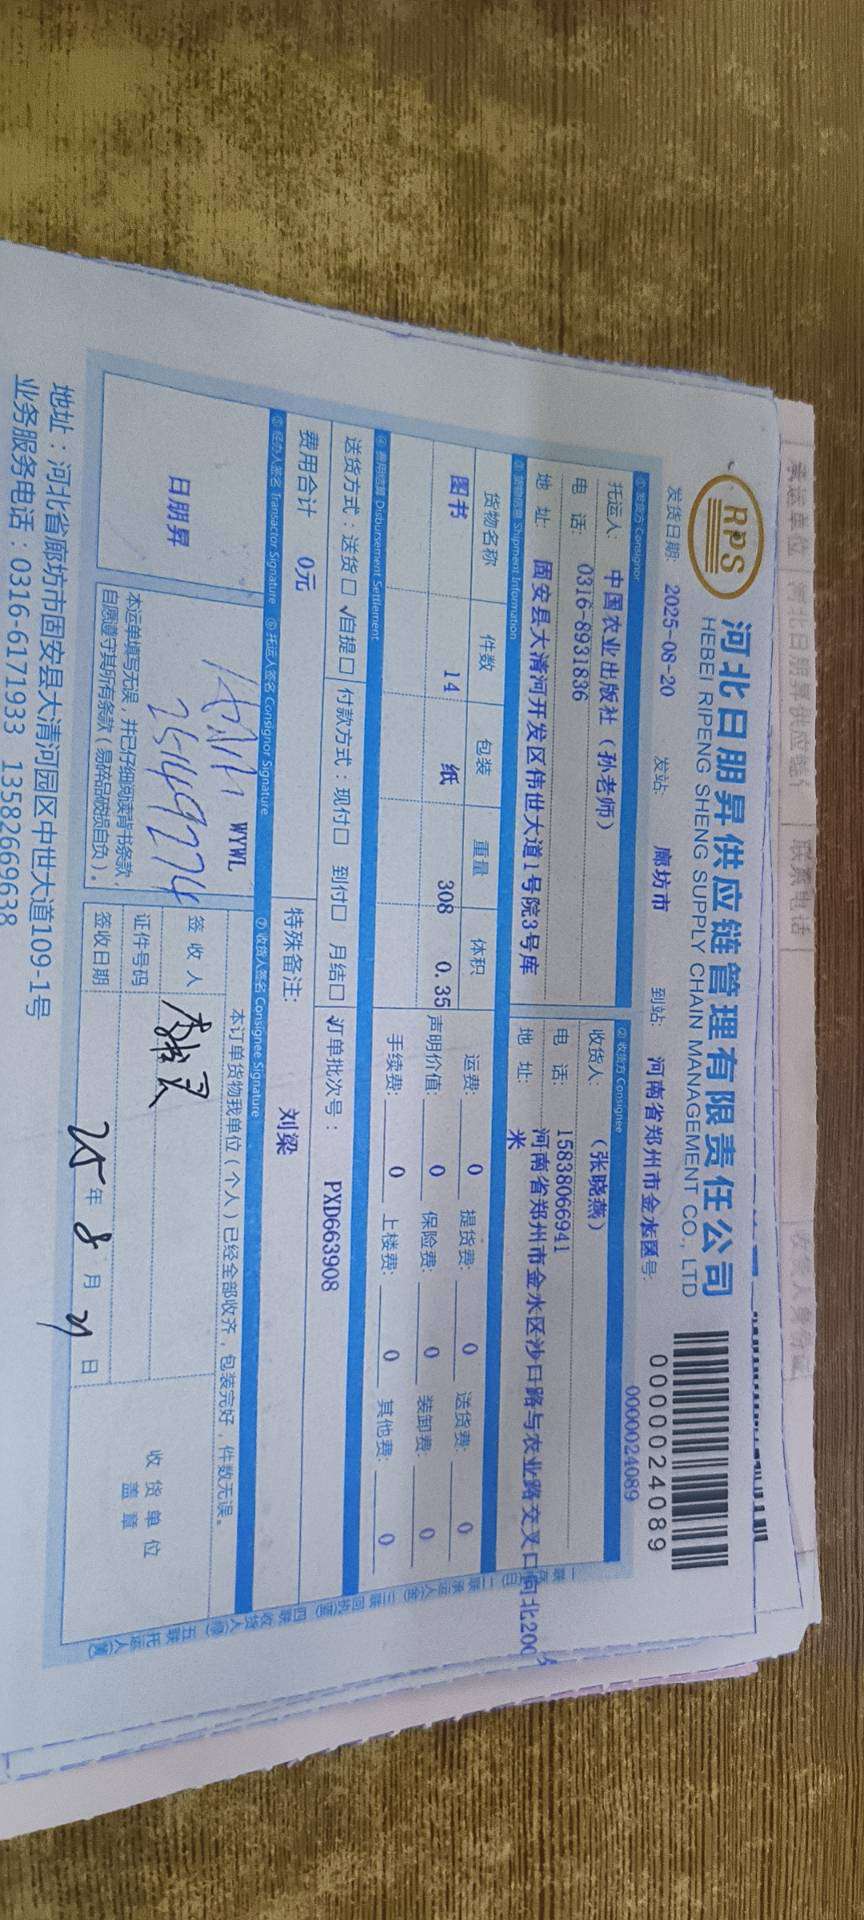 RPS
河北日朋昇供应链管理有限责任公司
HEBEI RIPENG SHENG SUPPLY CHAIN MANAGEMENT CO., LTD
0000024089
发货日期: 2025-08-20 发站: 廊坊市 到站: 河南省郑州市金水区号:
0000024089
① 发货方 Consignor ② 收货方 Consignee
托运人: 中国农业出版社(孙老师) 收货人: (张晓燕)
电 话: 0316-8931836 电 话: 15838066941
地 址: 固安县大清河开发区伟世大道1号院3号库 地 址: 河南省郑州市金水区沙口路与农业路交叉口向北200
米
③ 货物信息 Shipment Information
货物名称 件数 包装 重量 体积 运费: 0 提货费: 0 送货费: 0
图书 14 纸 308 0.35 声明价值: 0 保险费: 0 装卸费: 0
手续费: 0 上楼费: 0 其他费: 0
④ 费用结算 Disbursement Settlement
送货方式:送货□ √自提□ 付款方式:现付□ 到付□ 月结□ √订单批次号: PXD663908
费用合计 0元 特殊备注: 刘梁
⑤ 经办人签名 Transactor Signature ⑥ 托运人签名 Consignor Signature ⑦ 收货人签名 Consignee Signature
日朋昇
WYWL
25149274
本运单填写无误,并已仔细阅读背书条款,
自愿遵守其所有条款(易碎品破损自负)。
本订单货物我单位(个人)已经全部收齐,包装完好,件数无误。
签 收 人
证件号码
签收日期 25 年 8 月 21 日
收货单位
盖 章
地址:河北省廊坊市固安县大清河园区中世大道109-1号
业务服务电话:0316-6171933 13582669638